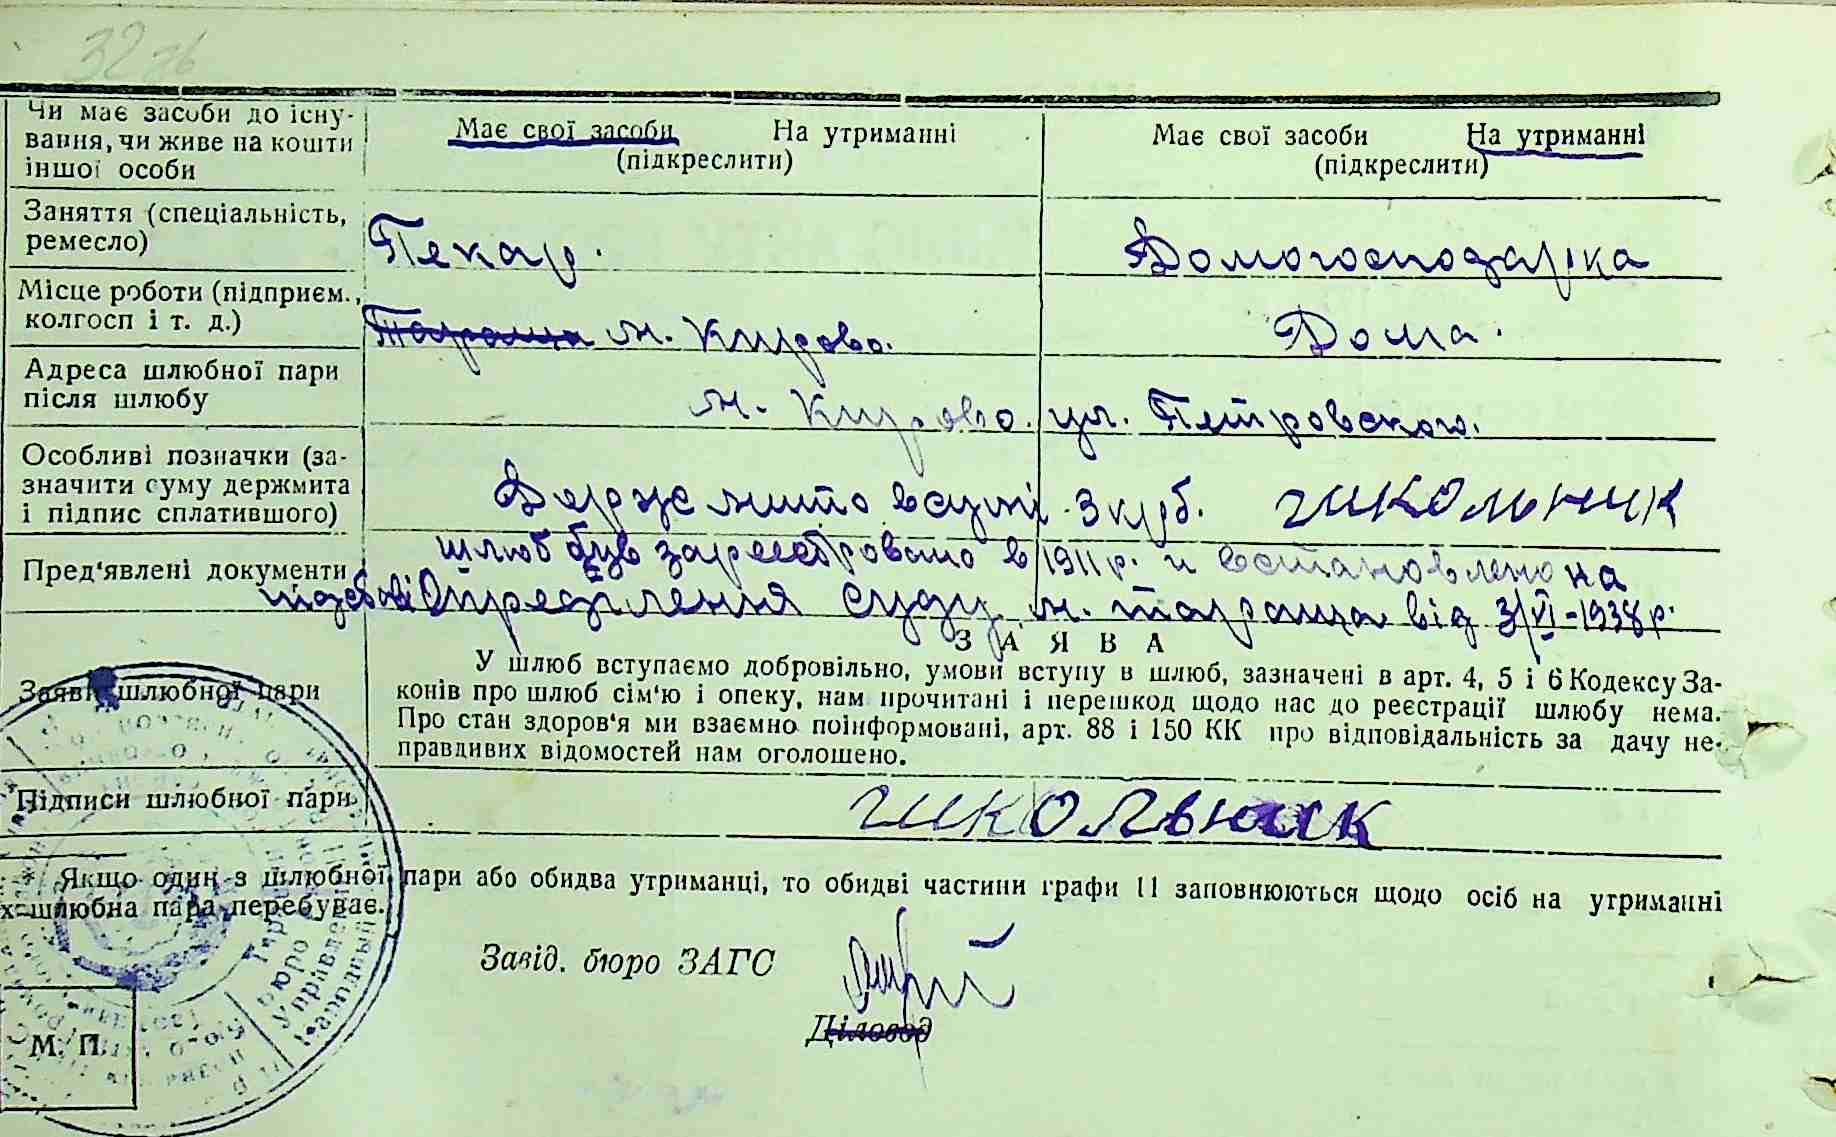 32 зв
Чи має засоби до існу-
вання, чи живе на кошти
іншої особи
Має свої засоби На утриманні
(підкреслити)
Має свої засоби На утриманні
(підкреслити)
Заняття (спеціальність,
ремесло)
Пекар.
Домогосподарка
Місце роботи (підприєм.,
колгосп і т. д.)
Тараща м. Кирово.
Дома.
Адреса шлюбної пари
після шлюбу
м. Кирово. ул. Петровского.
Особливі позначки (за-
значити суму держмита
і підпис сплатившого)
Держмито в сумі 3 крб. Школьник
Пред'явлені документи
шлюб був зареєстровано в 1911 р. и востановлено на
підставі Определення суду м. тараща від 3/VI-1938 р.
ЗАЯВА
Заяви шлюбної пари
У шлюб вступаємо добровільно, умови вступу в шлюб, зазначені в арт. 4, 5 і 6 Кодексу За-
конів про шлюб сім'ю і опеку, нам прочитані і перешкод щодо нас до реєстрації шлюбу нема.
Про стан здоров'я ми взаємно поінформовані, арт. 88 і 150 КК про відповідальність за дачу не-
правдивих відомостей нам оголошено.
Підписи шлюбної пари
Школьник
* Якщо один з шлюбної пари або обидва утриманці, то обидві частини графи 11 заповнюються щодо осіб на утриманні
х шлюбна пара перебуває.
Завід. бюро ЗАГС
Діловод
М. П.